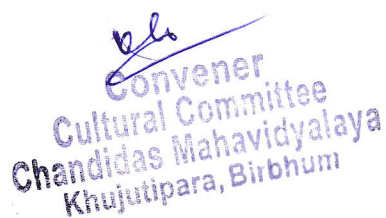 Convener
Cultural Committee
Chandidas Mahavidyalaya
Khujutipara, Birbhum